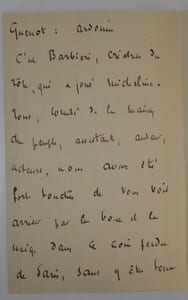 Guenot : Ardouin
C'est Barbieri, créateur du
rôle, qui a joué Micheline.
Nous, comité de la maison
du peuple, assistant, auteur,
acteurs, nous avons été
fort touchés de vous voir
arriver par la boue et la
neige dans ce coin perdu
de Paris, sans y être tenu